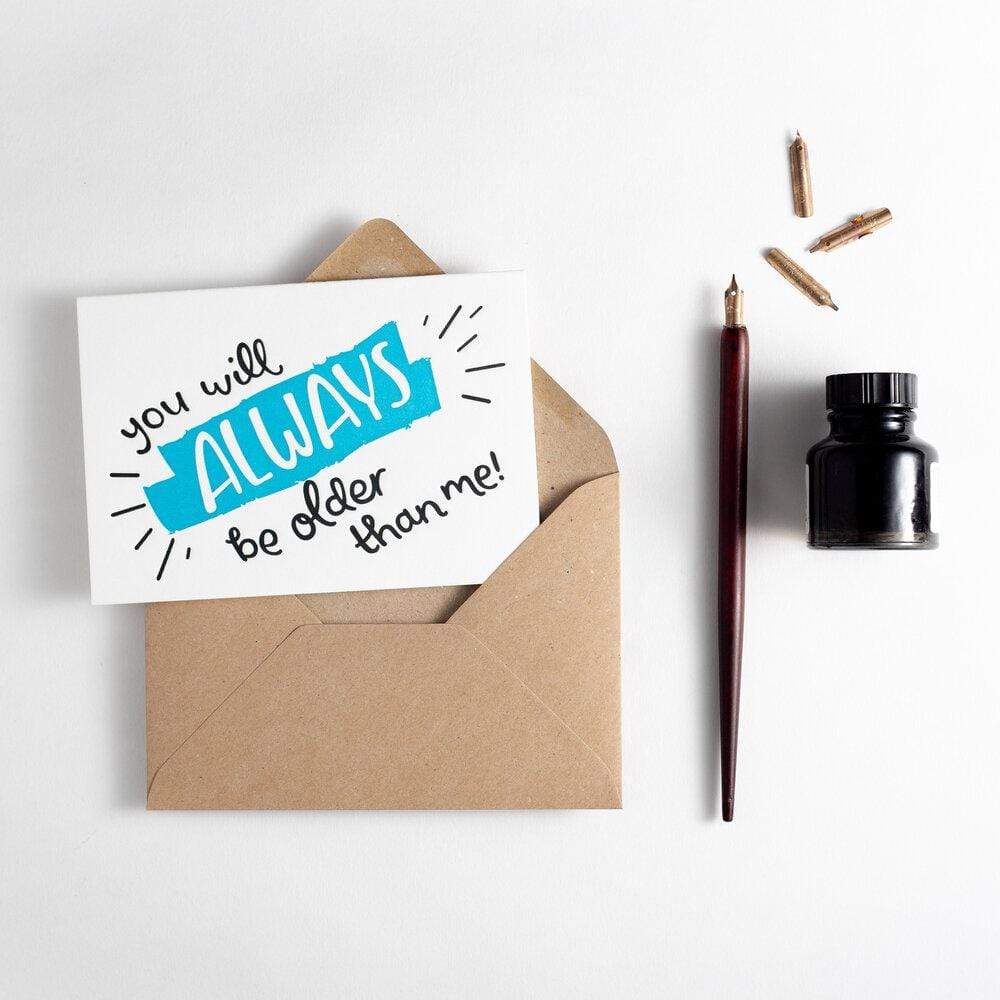 you will
ALWAYS
be older
than me!